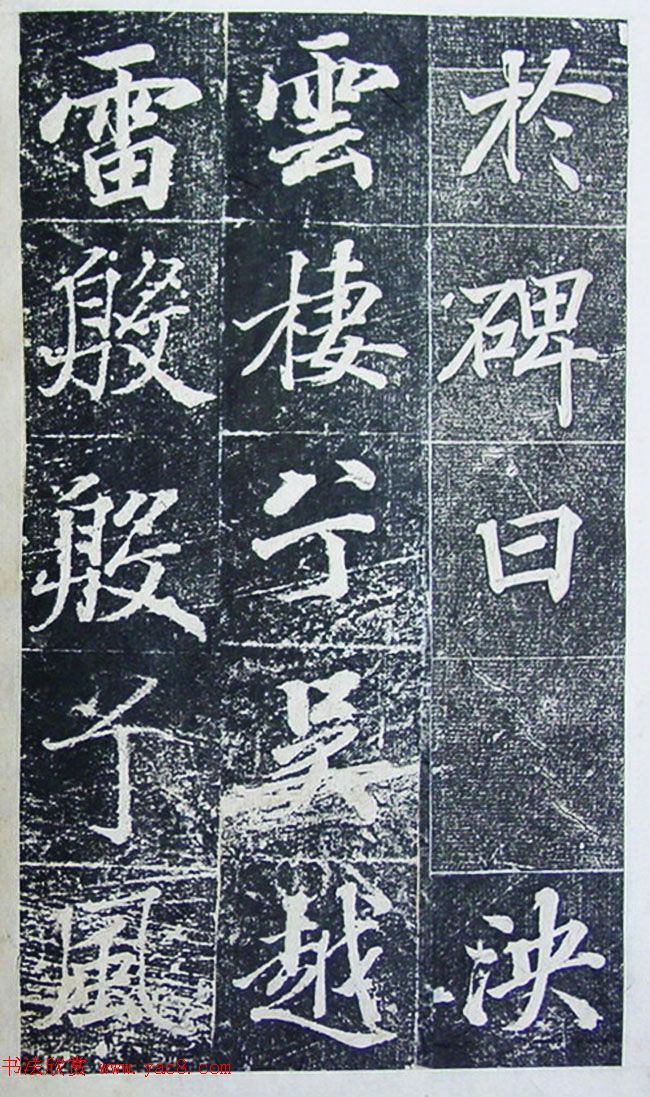 於碑曰 泱
雲棲兮吳越
雷殷殷兮風
书法欣赏 www.yac8.com